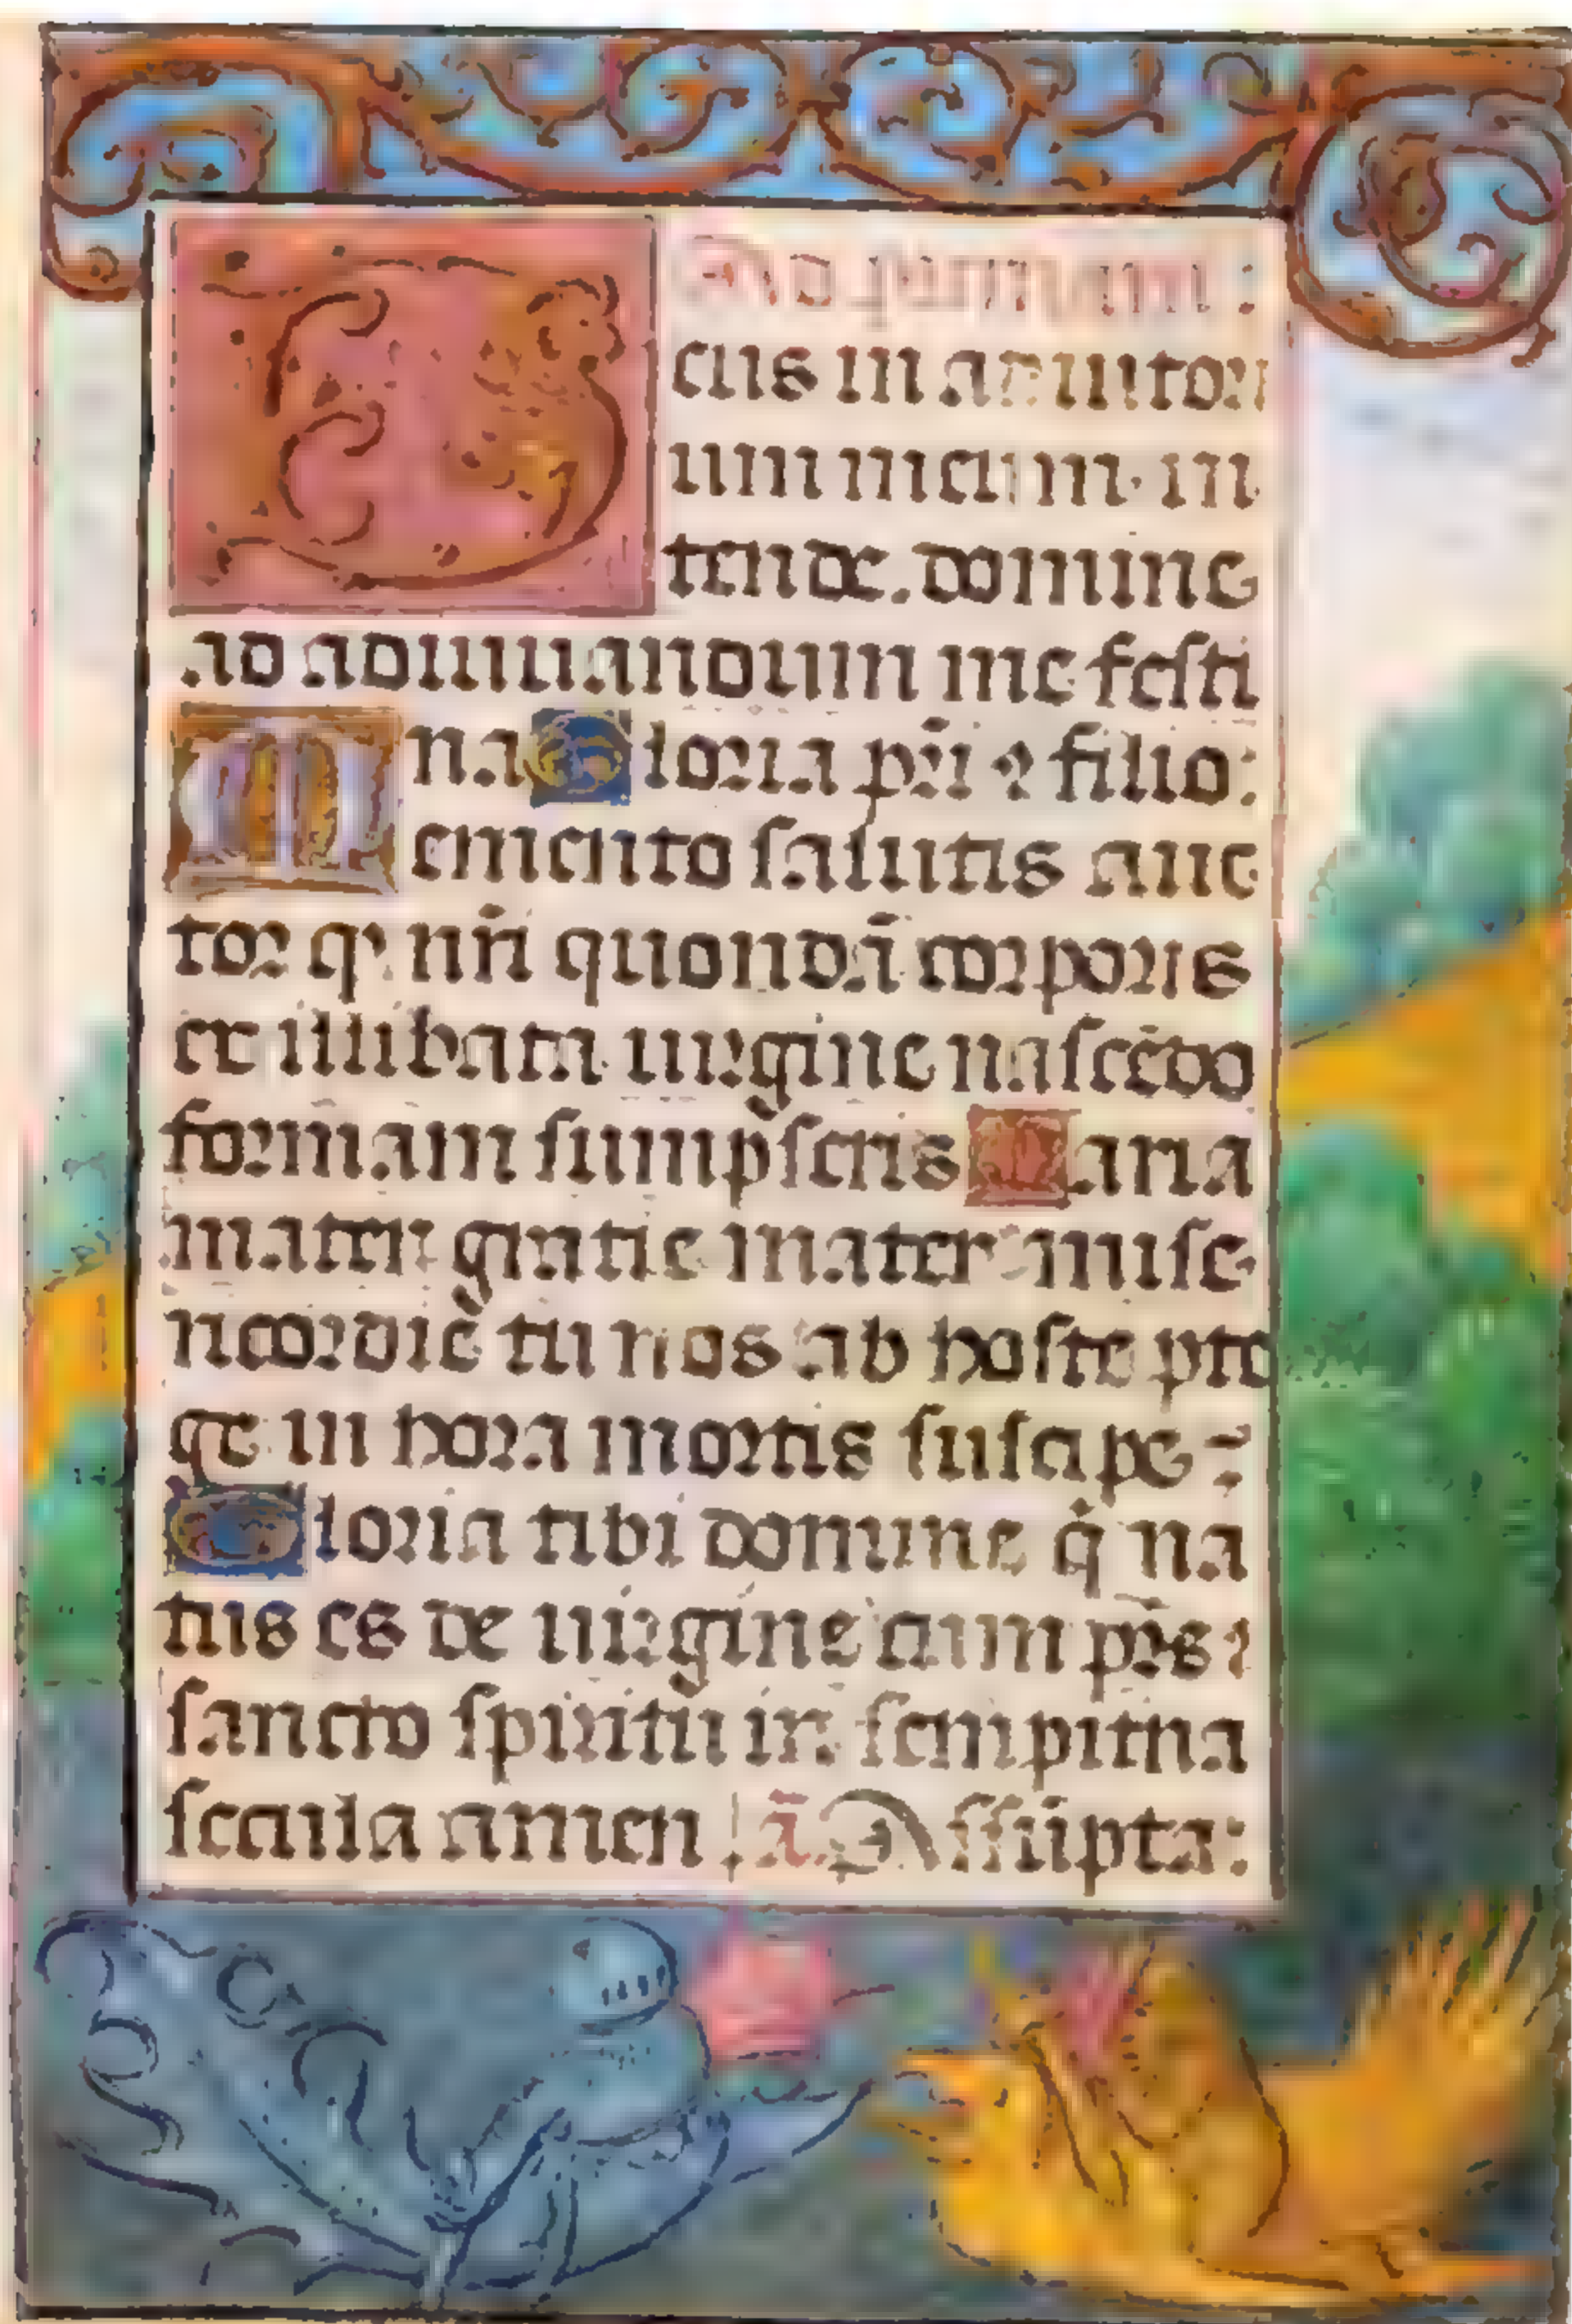 D
eus in adiutori
um meum in
tende. domine
ad adiuuandum me festi
na Gloria pr̄i ⁊ filio:
Memento salutis auc
tor qꝫ nr̄i quondā corporis
ex illibata uirgine nascēdo
formam sumpseris Maria
mater gratie mater mise
ricordie tu nos ab hoste pte
ge in hora mortis suscipe
Gloria tibi domine q̇ na
tus es de uirgine cum pr̄s ⁊
sancto spiritu in sempitna
secula amen ā. Assūpta: